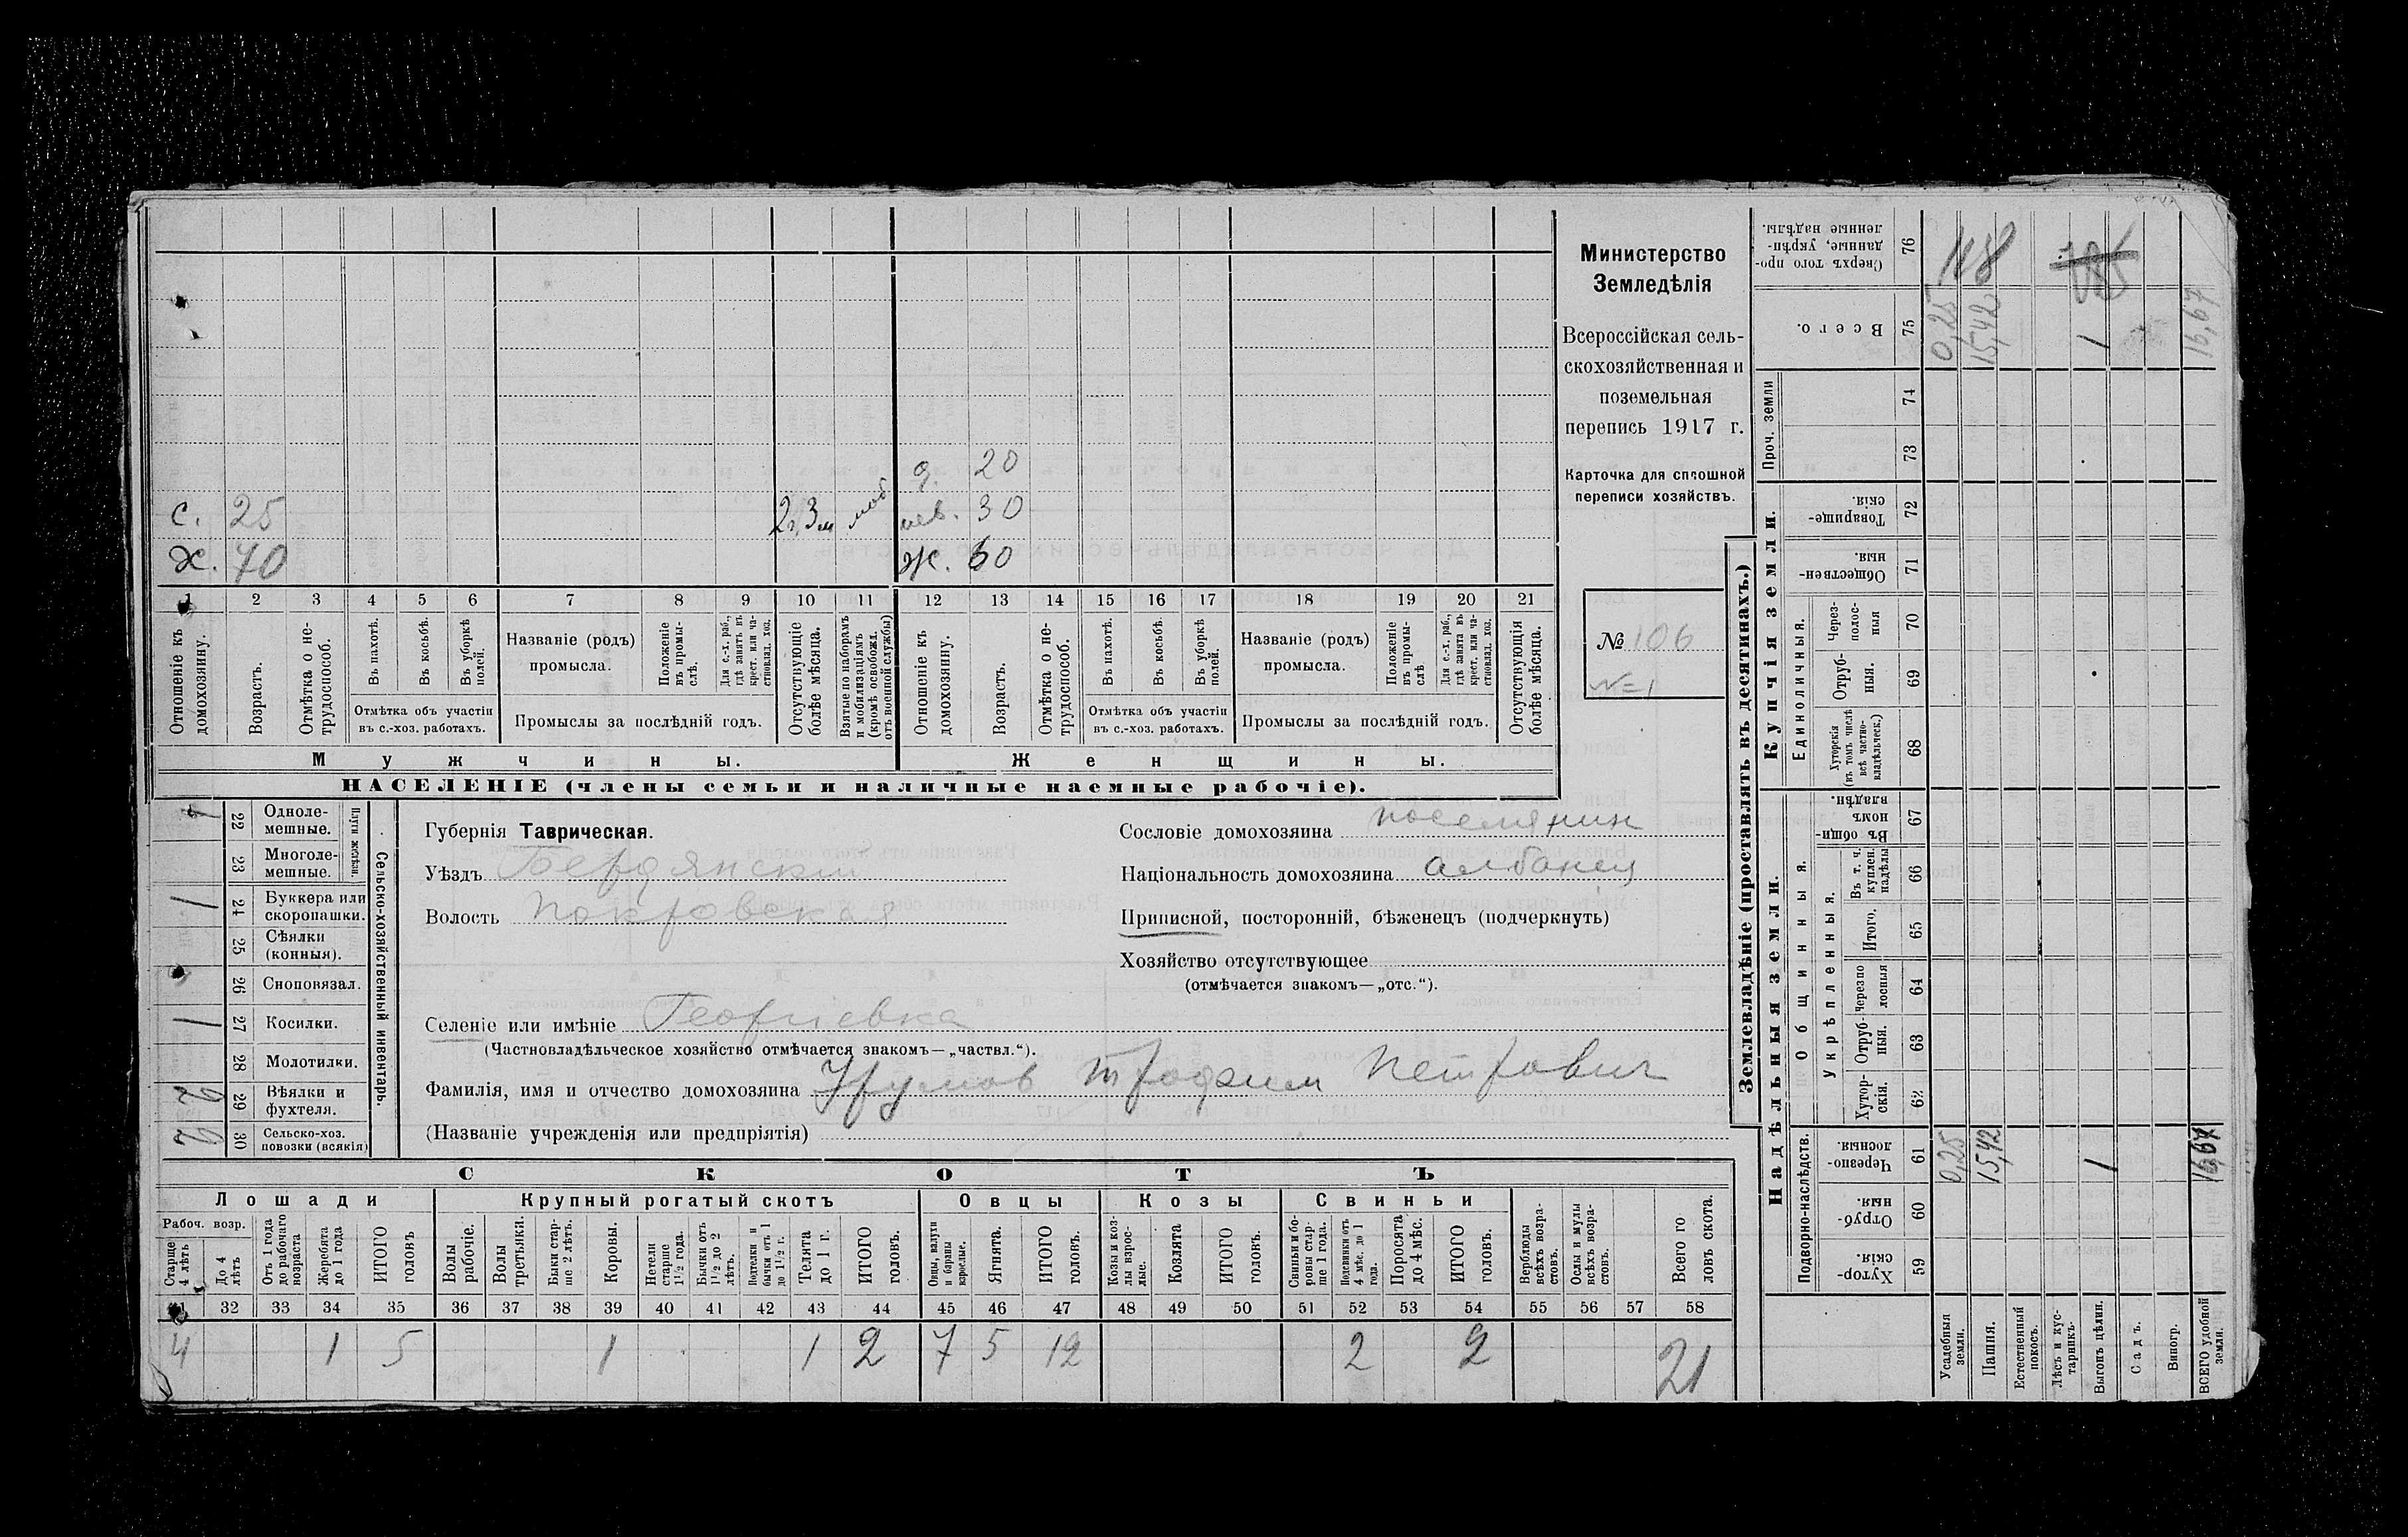 Министерство
Земледѣлія
Всероссійская сель-
скохозяйственная и
поземельная
перепись 1917 г.
Карточка для сплошной
переписи хозяйствъ.
№ 106
№ 1
д. 20
с. 25 2 г. 3 м моб нев. 30
х. 70 ж. 60
1 2 3 4 5 6 7 8 9 10 11 12 13 14 15 16 17 18 19 20 21
Отношеніе къ домохозяину.
Возрастъ.
Отмѣтка о не-трудоспособ.
Въ пахотѣ.
Въ косьбѣ.
Въ уборкѣ полей.
Отмѣтка объ участіи
въ с.-хоз. работахъ.
Названіе (родъ)
промысла.
Положеніе въ промы-слѣ.
Для с.-х. раб., гдѣ занятъ въ крест. или ча-стновлад. хоз.
Промыслы за послѣдній годъ.
Отсутствующіе болѣе мѣсяца.
Взятые по наборамъ и мобилизаціямъ (кромѣ освобожд. отъ военной службы)
Отношеніе къ домохозяину.
Возрастъ.
Отмѣтка о не-трудоспособ.
Въ пахотѣ.
Въ косьбѣ.
Въ уборкѣ полей.
Отмѣтка объ участіи
въ с.-хоз. работахъ.
Названіе (родъ)
промысла.
Положеніе въ промы-слѣ
Для с.-х. раб., гдѣ занята въ крест. или ча-стновлад. хоз.
Промыслы за послѣдній годъ.
Отсутствующія болѣе мѣсяца.
Мужчины. Женщины.
НАСЕЛЕНІЕ (члены семьи и наличные наемные рабочіе).
Сельско-хозяйственный инвентарь.
Плуги желѣзн.
22 Одноле-мешные.
23 Многоле-мешные.
1 24 Буккера или скоропашки.
25 Сѣялки (конныя).
26 Сноповязал.
1 27 Косилки.
28 Молотилки.
29 Вѣялки и фухтеля.
2 30 Сельско-хоз. повозки (всякія)
Губернія Таврическая.
Уѣздъ Бердянский
Волость Покровская
Селеніе или имѣніе Георгиевка
(Частновладѣльческое хозяйство отмѣчается знакомъ—„частвл.“).
Фамилія, имя и отчество домохозяина Урумов Трофим Петрович
(Названіе учрежденія или предпріятія)
Сословіе домохозяина поселянин
Національность домохозяина албанец
Приписной, посторонній, бѣженецъ (подчеркнуть)
Хозяйство отсутствующее
(отмѣчается знакомъ—„отс.“).
СКОТЪ
Лошади Крупный рогатый скотъ Овцы Козы Свиньи
Рабоч. возр.
Старше 4 лѣтъ
До 4 лѣтъ
Отъ 1 года до рабочаго возраста
Жеребята до 1 года
ИТОГО головъ
Волы рабочіе.
Волы третьяки.
Быки стар-ше 2 лѣтъ.
Коровы.
Нетели старше 1½ года.
Бычки отъ 1½ до 2 лѣтъ.
Подтелки и бычки отъ 1 до 1½ г.
Телята до 1 г.
ИТОГО головъ.
Овцы, валухи и бараны взрослые.
Ягнята.
ИТОГО головъ.
Козы и коз-лы взрос-лые.
Козлята
ИТОГО головъ.
Свиньи и бо-ровы стар-ше 1 года.
Подсвинки отъ 4 мѣс. до 1 года.
Поросята до 4 мѣс.
ИТОГО головъ.
Верблюды всѣхъ возра-стовъ.
Ослы и мулы всѣхъ возра-стовъ.
Всего го ловъ скота.
31 32 33 34 35 36 37 38 39 40 41 42 43 44 45 46 47 48 49 50 51 52 53 54 55 56 57 58
4 1 5 1 1 2 7 5 12 2 2 21
Землевладѣніе (проставлять въ десятинахъ.)
Надѣльныя земли. Купчія земли. Проч. земли
Подворно-наслѣдств.
Общинныя.
Укрѣпленныя.
Единоличныя.
Хутор-скія. 59
Отруб-ныя. 60
Черезпо-лосныя. 61
Хутор-скія. 62
Отруб-ныя. 63
Черезпо лосныя 64
Итого. 65
Въ т. ч. куплен. надѣлы 66
Въ общи-номъ владѣн. 67
Хуторскія (въ томъ числѣ всѣ частно-владѣльческ.) 68
Отруб-ныя. 69
Через-полос-ныя 70
Обществен-ныя. 71
Товарище-скія. 72
73
74
Всего. 75
Сверхъ того про-данные, укрѣп-ленные надѣлы. 76
Усадебныя земли.
Пашня.
Естественный покосъ.
Лѣсъ и кус-тарникъ.
Выгонъ цѣлин.
Садъ.
Виногр.
ВСЕГО удобной земли.
0,25 15,42 1 16,67
0,25 15,42 1 16,67